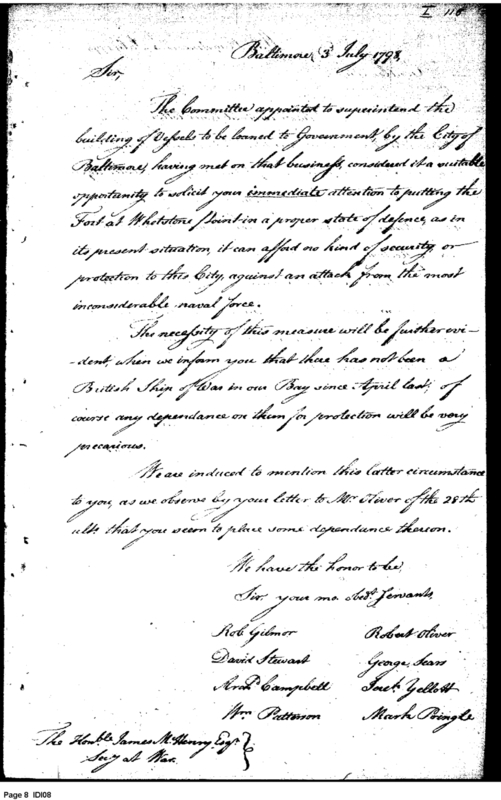 I 118
Baltimore, 3d July 1798,
Sir,
The Committee appointed to superintend the
building of Vessels to be loaned to Government, by the City of
Baltimore, having met on that business, considered it a suitable
opportunity to solicit your immediate attention to putting the
Fort at Whetstone Point in a proper state of defence, as in
its present situation, it can afford no kind of security or
protection to this City, against an attack from the most
inconsiderable naval force.
The necessity of this measure will be further evi-
-dent, when we inform you that there has not been a
British Ship of War in our Bay since April last, of
course any dependance on them for protection will be very
precarious.
We are induced to mention this latter circumstance
to you, as we observe by your letter to Mr. Oliver of the 28th
ulto. that you seem to place some dependance thereon.
We have the honor to be
Sir, your mo. Obdt. Servants,
Rob Gilmor Robert Oliver
David Stewart George Sears
Archd. Campbell Jereh. Yellott
Wm Patterson Mark Pringle
The Honble James McHenry Esqr.
Secy at War.
Page 8 IDI08